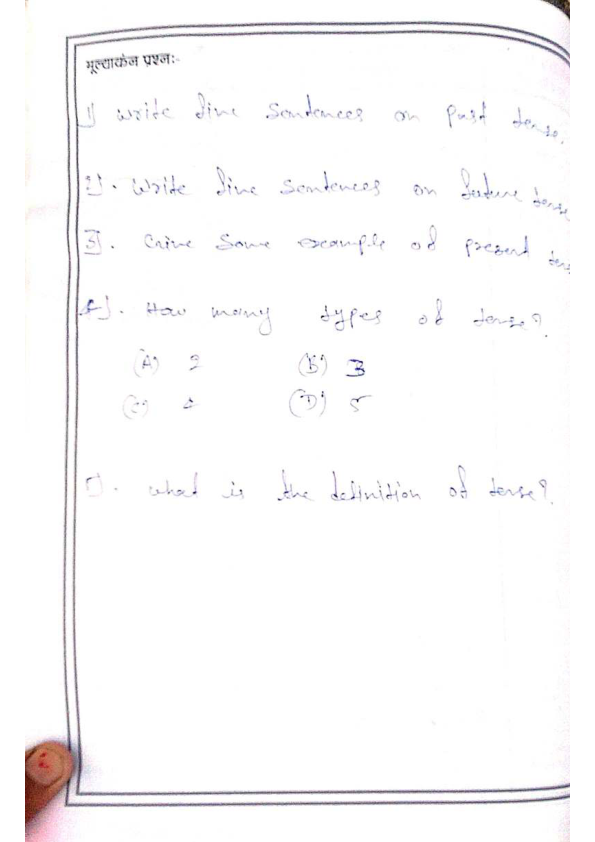 मूल्याकंन प्रश्न:-
1) write five sentences on past tense.
2). write five sentences on future tense
3). Give some example of present tens
4). How many types of tense?
(A) 2 (B) 3
(C) 4 (D) 5
5). what is the definition of tense?